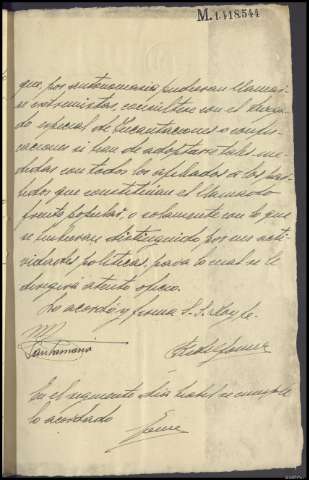 M.1.418.544
que, por autonomasia pudieran llamar-
se extremistas, consúltese con el Juzga-
do especial de Incautaciones o confis-
caciones si han de adoptarse tales me-
didas con todos los afiliados a los par-
tidos que constituían el llamado
frente popular, o solamente con los que
se hubieran distinguido por sus acti-
vidades políticas, para lo cual se le
dirigirá atento oficio.
Lo acordó y firma S.S. doy fe.
Santamaria
En el siguiente día hábil se cumple
lo acordado